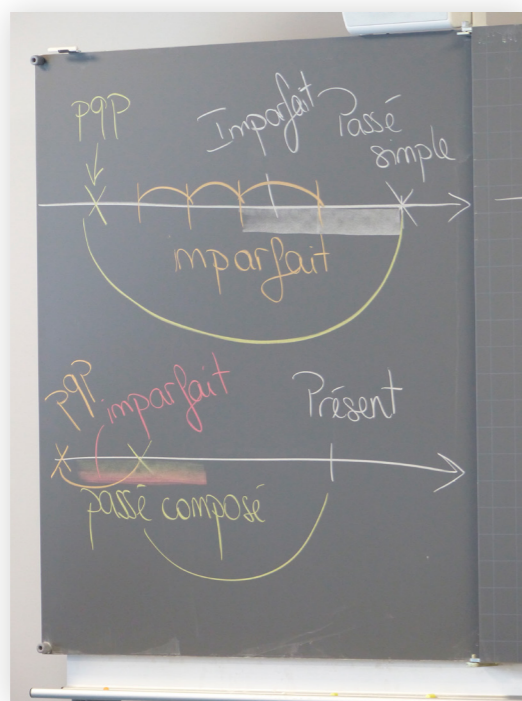 pqp
Imparfait
Passé
simple
imparfait
pqp
imparfait
Présent
passé composé